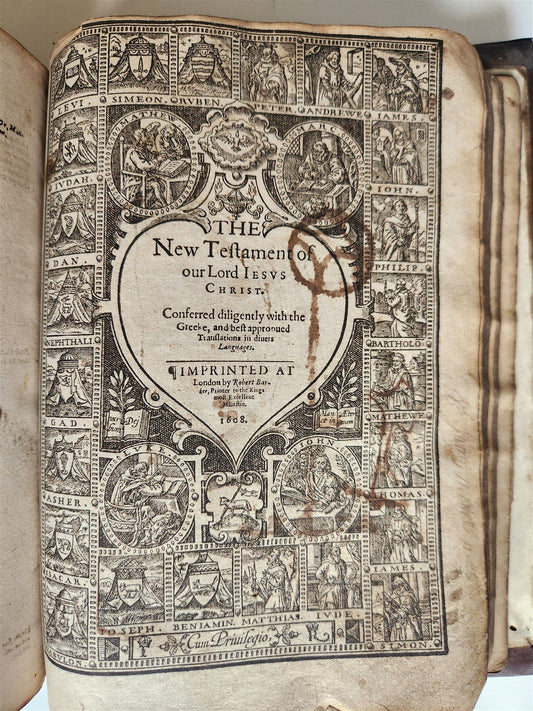 LEVI. SIMEON. RVBEN. PETER. ANDREWE IAMES.
MATHEW
MARC
IVDAH.
IOHN.
DAN.
PHILIP.
NEPHTHALI
BARTHOLO.
GAD.
MATHEWE
ASHER.
THOMAS.
IAMES.
THE
New Teſtament of
our Lord IESVS
CHRIST.
Conferred diligently with the
Greeke, and beſt approoued
Tranſlations in diuers
Languages.
¶IMPRINTED AT
London by Robert Bar-
ker, Printer to the Kings
moſt Excellent
Maieſtie.
1608.
LVKE
IOHN
IOSEPH. BENJAMIN. MATTHIAS. IVDE.
SIMON.
Cum Priuilegio.